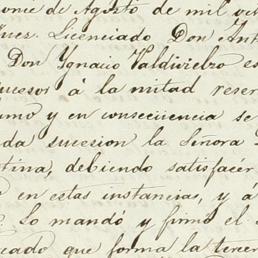 once de Agosto de mil och
Juez. Licenciado Don Ant
Don Ygnacio Valdivielzo es
sucesor á la mitad reser
imo y en consecuencia se
da sucesion la Señora
tina, debiendo satisfacér
en estas instancia, y á
Lo mandó y firmó el
cado que forma la tercer